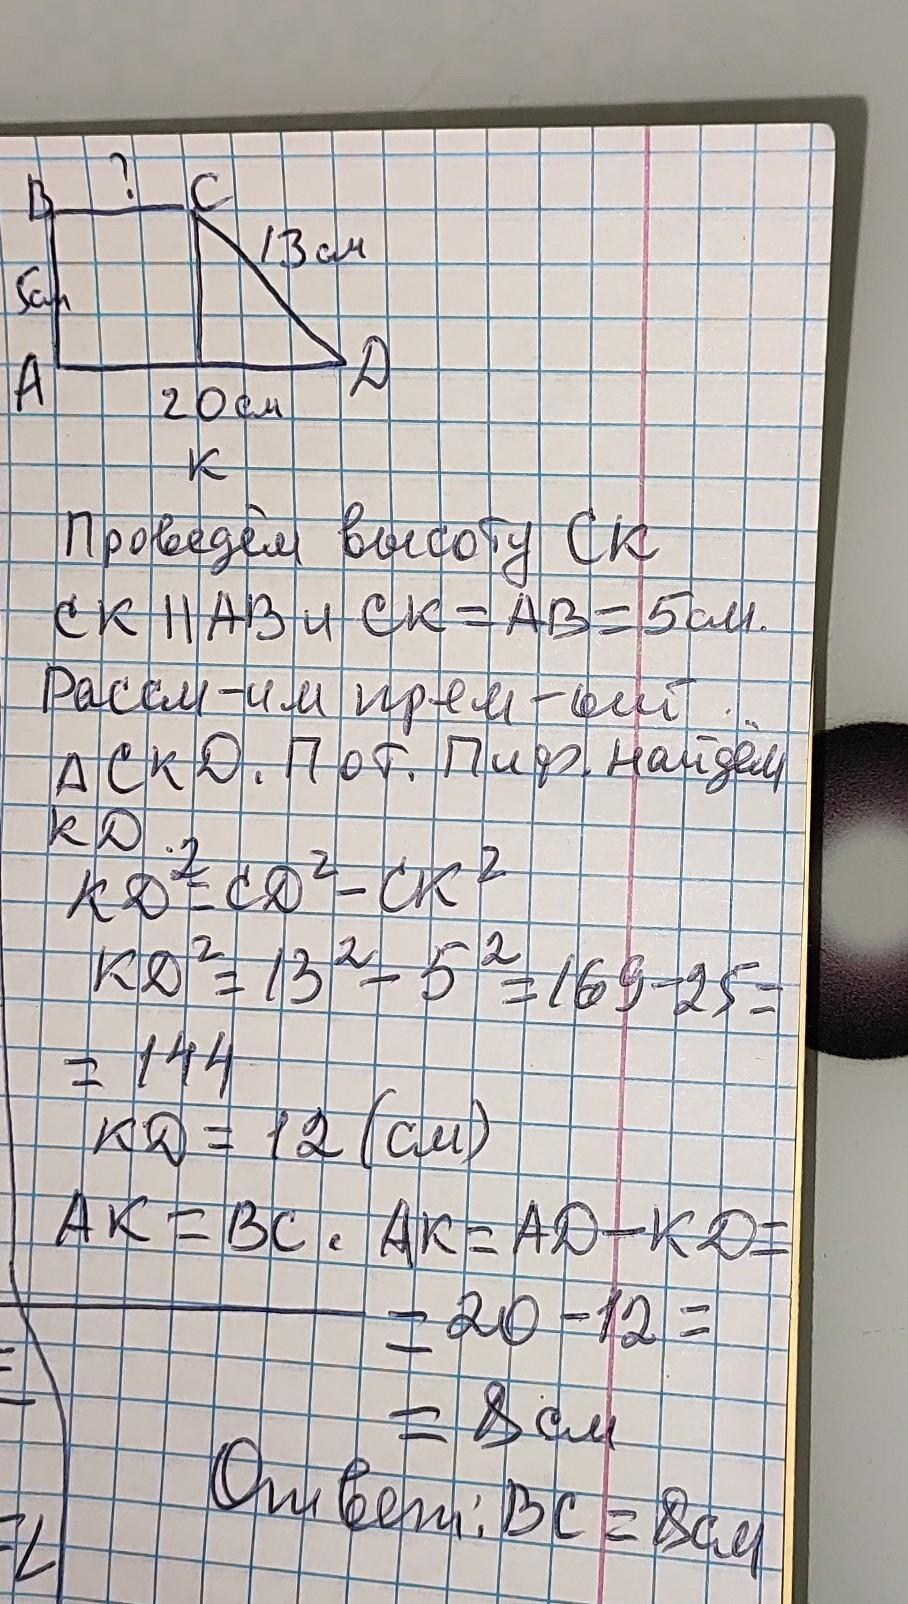 ?
B C
13 см
5см
A D
20 см
K
Проведём высоту CK
CK || AB и CK = AB = 5 см.
Рассм-им прям-ый
Δ CKD. П от. Пиф. найдём
KD.
KD² = CD² - CK²
KD² = 13² - 5² = 169-25=
= 144
KD = 12 (см)
AK = BC. AK = AD - KD =
= 20 - 12 =
= 8 см
Ответ: BC = 8см